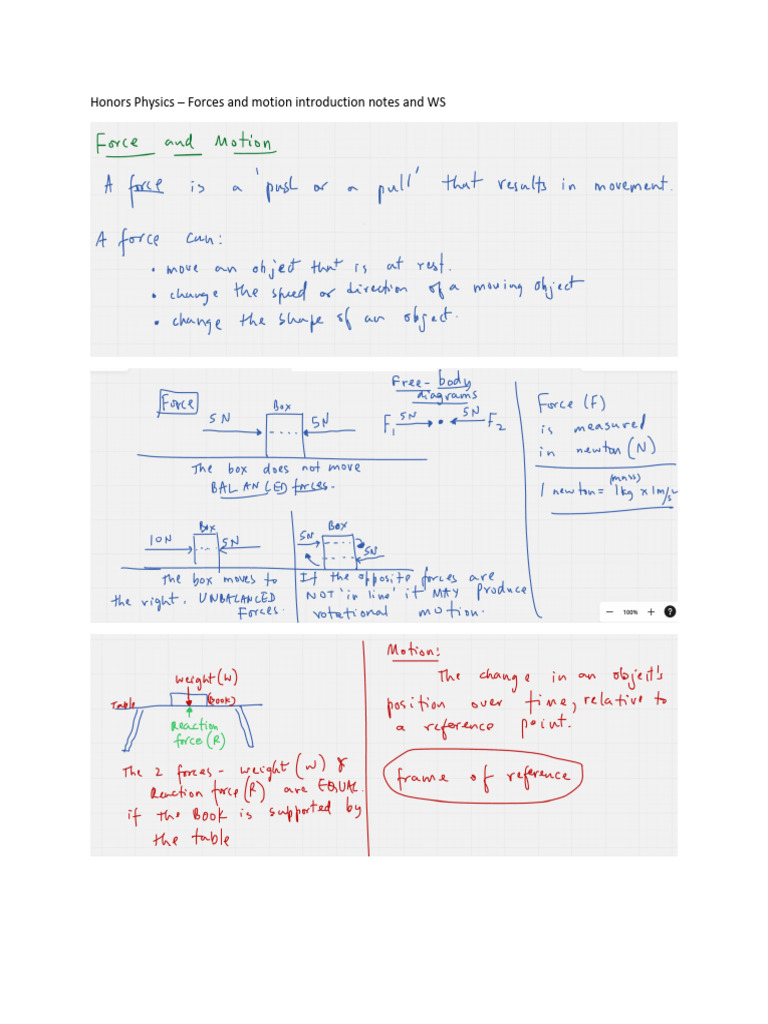 Honors Physics – Forces and motion introduction notes and WS
Force and Motion
A force is a 'push or a pull' that results in movement.
A force can:
• move an object that is at rest.
• change the speed or direction of a moving object
• change the shape of an object.
Force
Box
5N
5N
The box does not move
BALANCED forces.
Free-body
diagrams
F1 5N 5N F2
Force (F)
is measured
in newton (N)
(mass)
1 newton = 1kg x 1m/s²
Box
10N
5N
The box moves to
the right. UNBALANCED
Forces.
Box
5N
5N
If the opposite forces are
NOT 'in line' it MAY produce
rotational motion.
100%
weight (W)
Table
(Book)
Reaction
force (R)
The 2 forces - weight (W) &
Reaction force (R) are EQUAL.
if the Book is supported by
the table
Motion:
The change in an object's
position over time, relative to
a reference point.
frame of reference